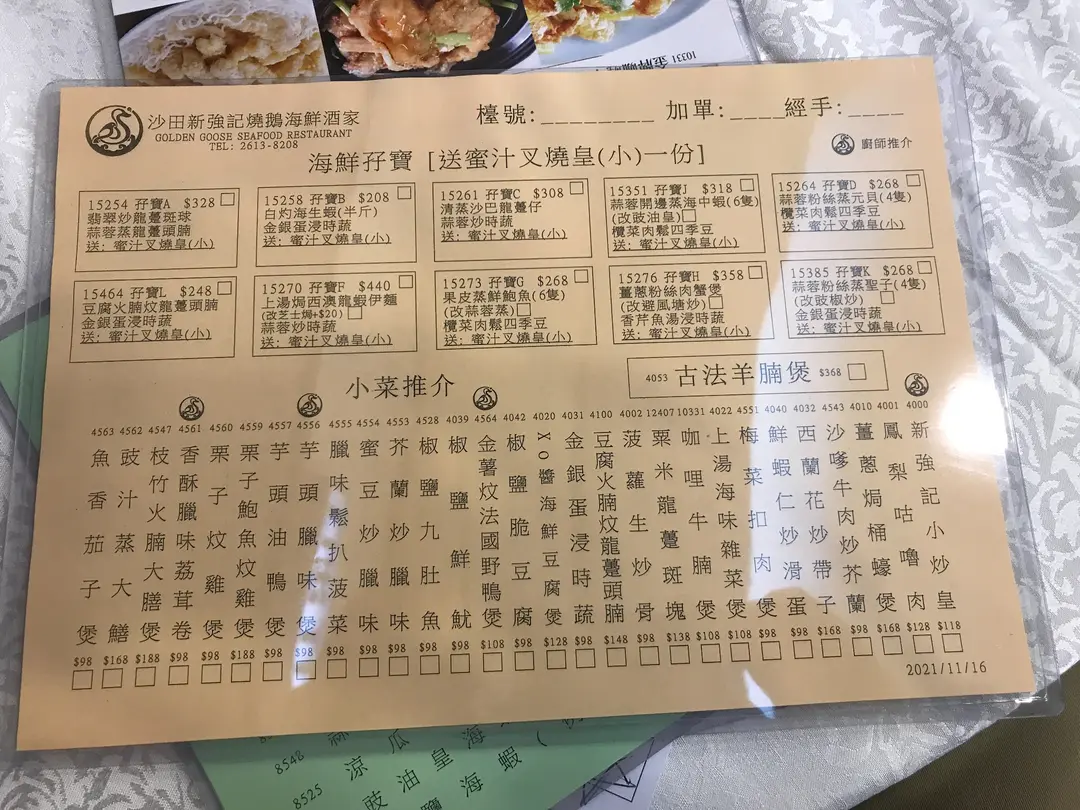 10331 金牌咖喱
沙田新強記燒鵝海鮮酒家
GOLDEN GOOSE SEAFOOD RESTAURANT
TEL: 2613-8208
檯號:_________ 加單:____ 經手:____
海鮮孖寶 [送蜜汁叉燒皇(小)一份]
廚師推介
15254 孖寶A $328
翡翠炒龍躉斑球
蒜蓉蒸龍躉頭腩
送: 蜜汁叉燒皇(小)
15258 孖寶B $208
白灼海生蝦(半斤)
金銀蛋浸時蔬
送: 蜜汁叉燒皇(小)
15261 孖寶C $308
清蒸沙巴龍躉仔
蒜蓉炒時蔬
送: 蜜汁叉燒皇(小)
15351 孖寶J $318
蒜蓉開邊蒸海中蝦(6隻)
(改豉油皇)
欖菜肉鬆四季豆
送: 蜜汁叉燒皇(小)
15264 孖寶D $268
蒜蓉粉絲蒸元貝(4隻)
欖菜肉鬆四季豆
送: 蜜汁叉燒皇(小)
15464 孖寶L $248
豆腐火腩炆龍躉頭腩
金銀蛋浸時蔬
送: 蜜汁叉燒皇(小)
15270 孖寶F $440
上湯焗西澳龍蝦伊麵
(改芝士焗+$20)
蒜蓉炒時蔬
送: 蜜汁叉燒皇(小)
15273 孖寶G $268
果皮蒸鮮鮑魚(6隻)
(改蒜蓉蒸)
欖菜肉鬆四季豆
送: 蜜汁叉燒皇(小)
15276 孖寶H $358
薑蔥粉絲肉蟹煲
(改避風塘炒)
香芹魚湯浸時蔬
送: 蜜汁叉燒皇(小)
15385 孖寶K $268
蒜蓉粉絲蒸聖子(4隻)
(改豉椒炒)
金銀蛋浸時蔬
送: 蜜汁叉燒皇(小)
小菜推介
4053 古法羊腩煲 $368
4000 新強記小炒皇 $118
4001 鳳梨咕嚕肉 $128
4010 薑蔥焗桶蠔煲 $168
4543 沙嗲牛肉炒芥蘭 $98
4032 西蘭花炒帶子 $168
4040 鮮蝦仁炒滑蛋 $98
4551 梅菜扣肉煲 $98
4022 上湯海味雜菜煲 $108
10331 咖哩牛腩煲 $108
12407 粟米龍躉斑塊 $138
4002 菠蘿生炒骨 $98
4100 豆腐火腩炆龍躉頭腩 $148
4031 金銀蛋浸時蔬 $98
4020 XO醬海鮮豆腐煲 $128
4042 椒鹽脆豆腐 $98
4564 金薯炆法國野鴨煲 $108
4039 椒鹽鮮魷 $98
4528 椒鹽九肚魚 $98
4553 芥蘭炒臘味 $98
4554 蜜豆炒臘味 $98
4555 臘味鬆扒菠菜 $98
4556 芋頭臘味煲 $98
4557 芋頭油鴨煲 $98
4559 栗子鮑魚炆雞煲 $188
4560 栗子炆雞煲 $98
4561 香酥臘味荔茸卷 $98
4547 枝竹火腩大膳煲 $188
4562 豉汁蒸大鱔 $168
4563 魚香茄子煲 $98
2021/11/16
8548 涼瓜
8525 豉油皇海
海蝦(